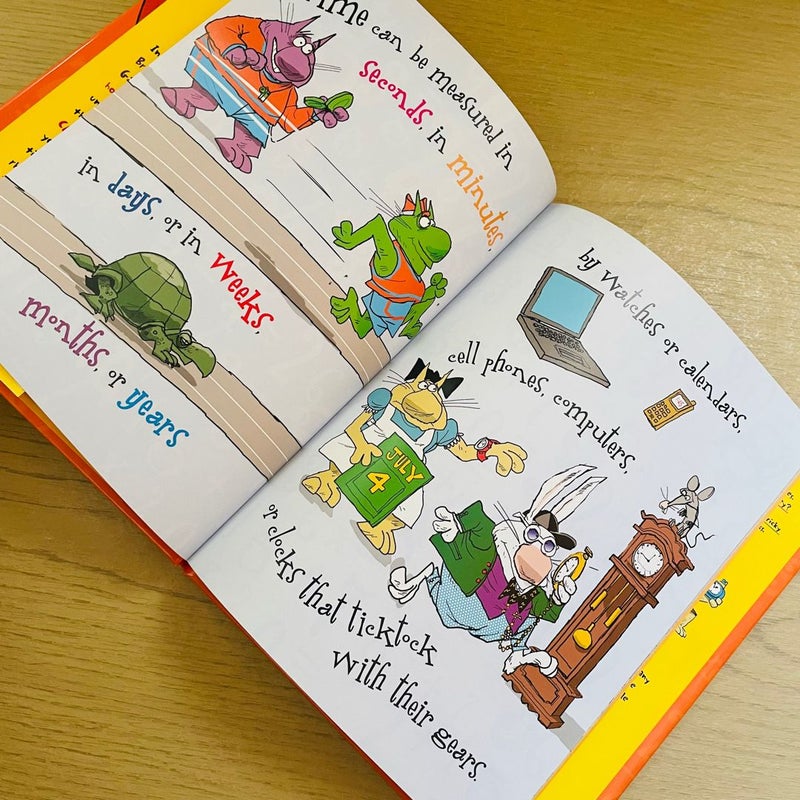 Time can be measured in
seconds, in minutes,
in days, or in weeks,
months, or years
by watches or calendars,
cell phones, computers,
JULY
4
or clocks that ticktock
with their gears.
ricky